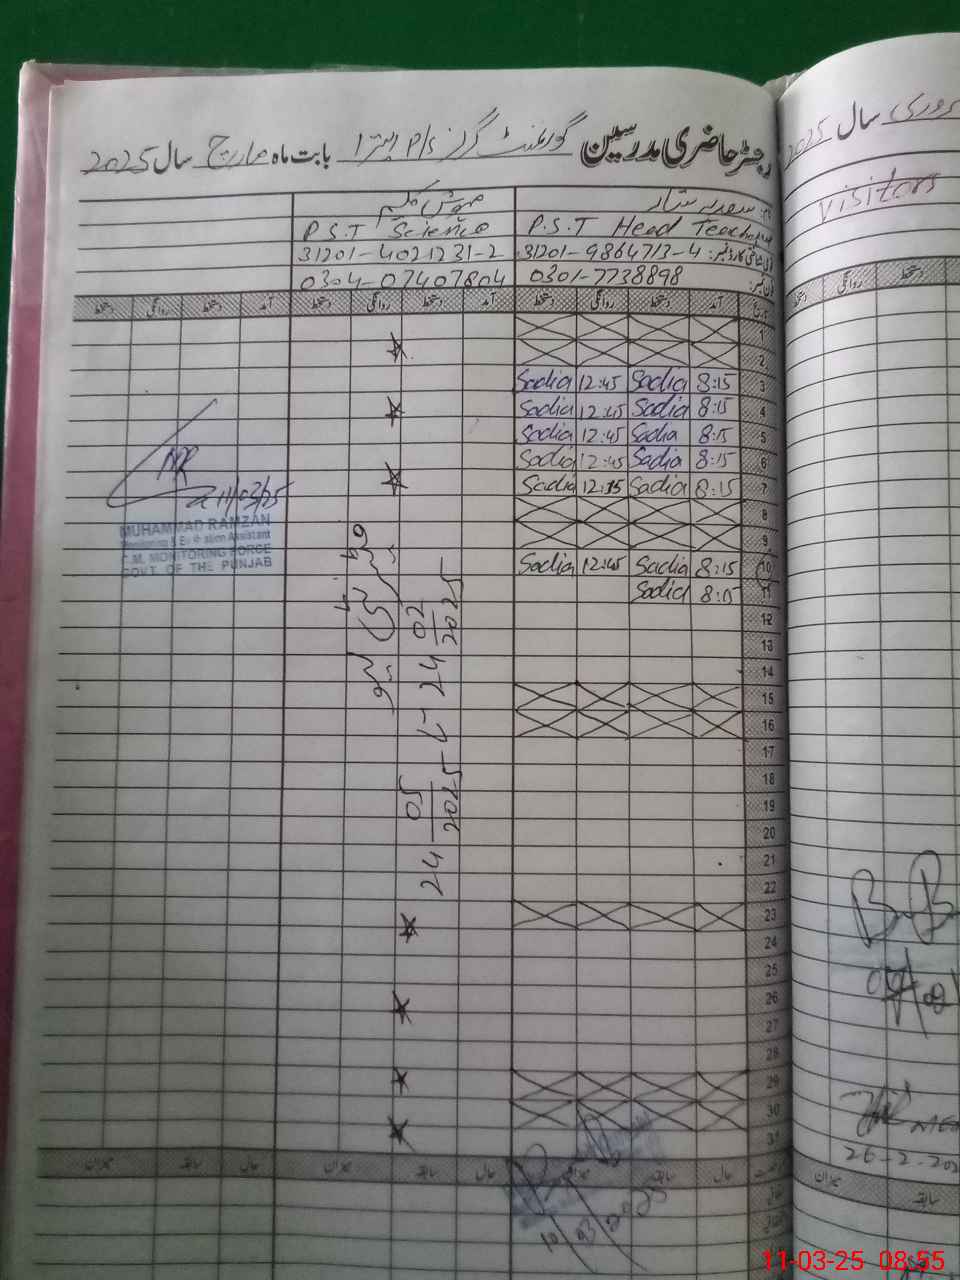 رجسٹر حاضری مدرسین گورنمنٹ گرلز P/S بابت ماہ مارچ سال 2025
سعدیہ ستار
P.S.T Head Teacher
31201-9864713-4
0301-7738898
مہوش
P.S.T Science
31201-4021231-2
0304-07407804
تاریخ آمد دستخط روانگی دستخط آمد دستخط روانگی دستخط آمد دستخط روانگی دستخط
1
2
3 8:15 Sadia 12:45 Sadia
4 8:15 Sadia 12:45 Sadia
5 8:15 Sadia 12:45 Sadia
6 8:15 Sadia 12:45 Sadia
7 8:15 Sadia 12:15 Sadia
8
9
10 8:15 Sadia 12:45 Sadia
11 8:15 Sadia
12
13
14
15
16
17
18
19
20
21
22
23
24
25
26
27
28
29
30
31
میٹرنٹی لیو
24 05/2025 24 02/2025
11/03/25
MUHAMMAD RAMZAN
Monitoring & Evaluation Assistant
C.M. MONITORING FORCE
GOVT. OF THE PUNJAB
حال سابقہ میزان حال سابقہ میزان حال سابقہ میزان
10/03/2025
فروری سال 2025
Visitors
دستخط روانگی دستخط
26-2-202
میزان سابقہ
11-03-25 08:55